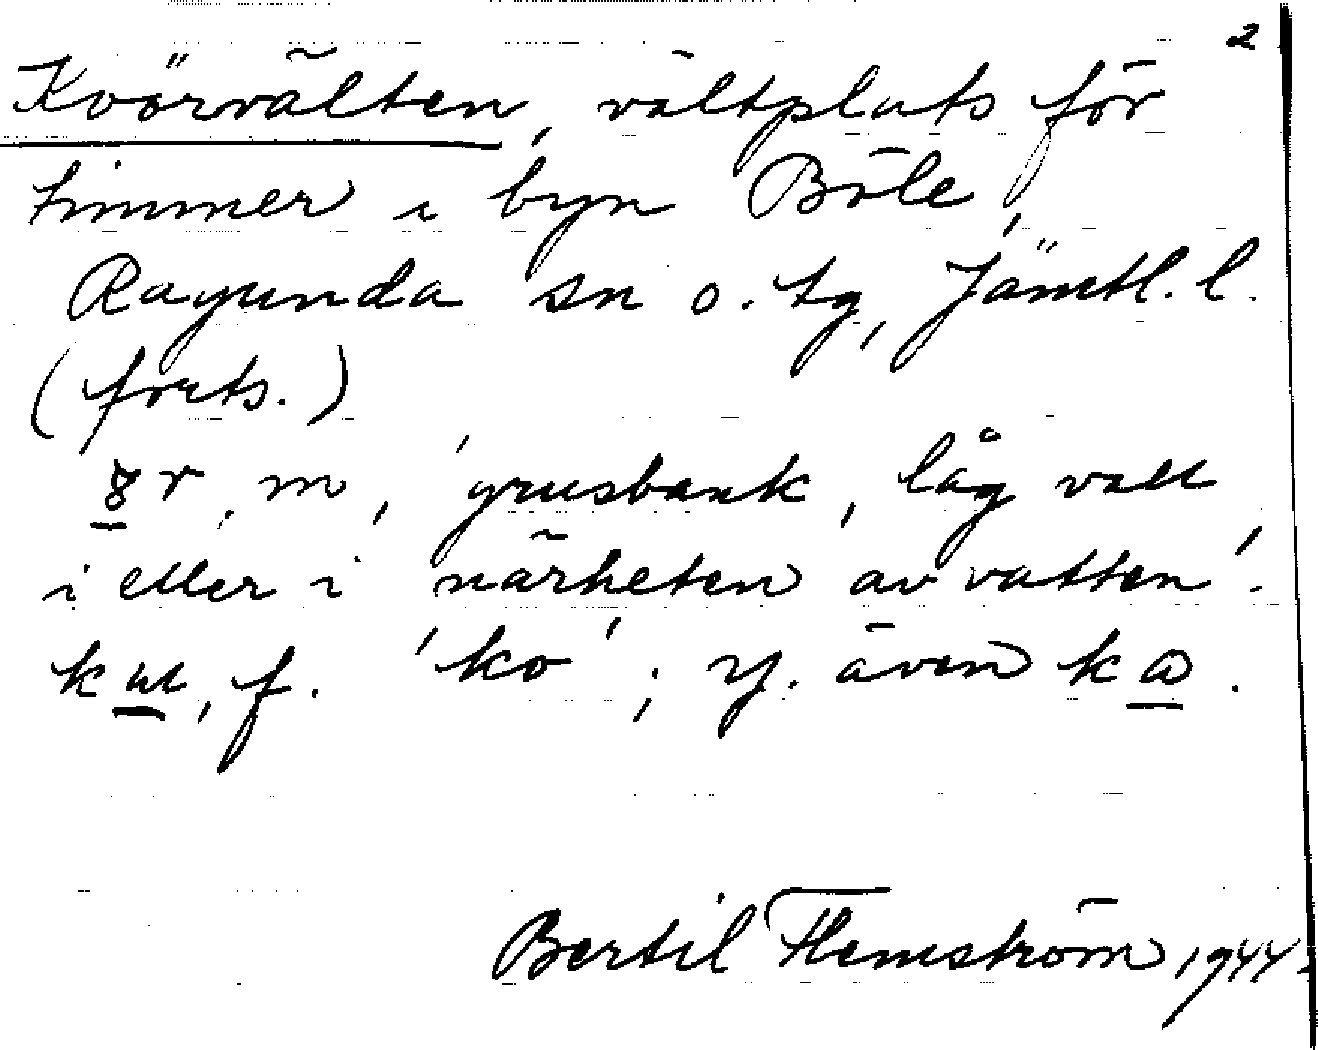 2
Kvörvälten, vältplats för
timmer i byn Böle,
Ragunda sn o. tg, Jämtl. l.
(forts.)
r, m, 'grusbank, låg vall
i eller i närheten av vatten'.
k, f. 'ko'; y. även k.
Bertil Flemström 1944